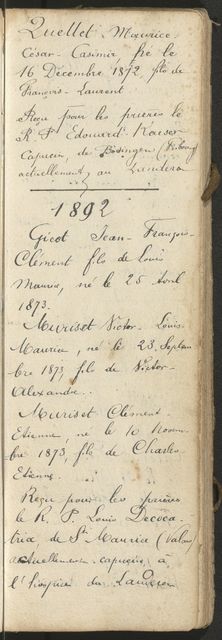 Quellet Maurice
César-Casimir né le
16 Décembre 1872, fils de
François-Laurent
Reçu pour les prières le
R. P. Edouard Kaeser
Capucin, de Bösingen (Fribourg)
actuellement, au Landeron
1892
Gicot Jean-François-
Clément fils de Louis
Maurice, né le 25 Avril
1873.
Muriset Victor-Louis-
Maurice, né le 23 Septem
bre 1873, fils de Victor-
Alexandre.
Muriset Clément
Etienne, né le 10 Novem-
bre 1873, fils de Charles
Etienne.
Reçu pour les prières
le R. P. Louis Decoca-
tria, de St Maurice (Valais)
actuellement capucin à
l'hospice du Landeron